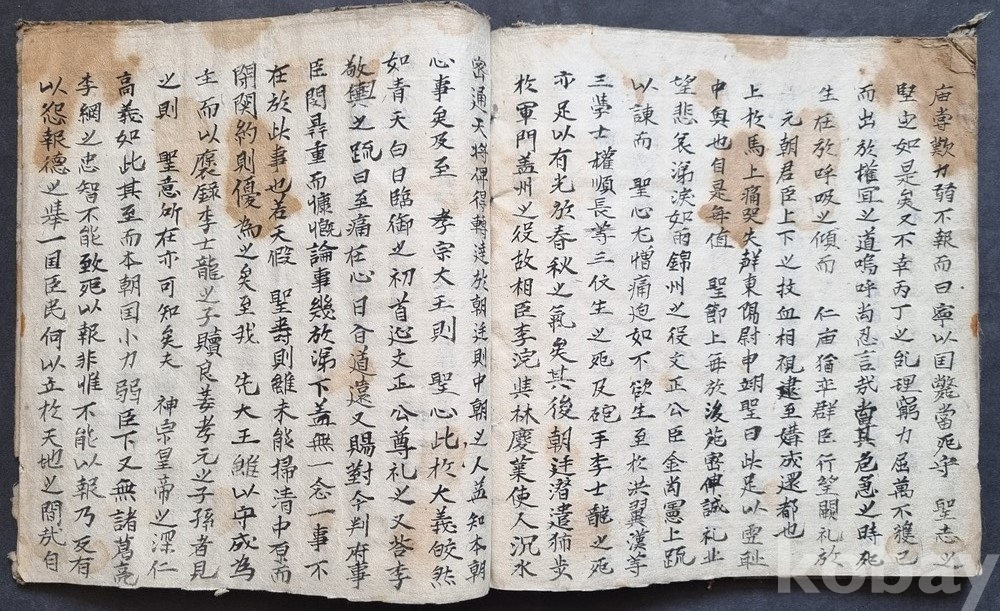 庙等歎力弱不報而曰寧以国斃當死守 聖志之
堅定如是矣又不幸丙丁之乱理窮力屈萬不獲已
而出於權宜之道嗚呼尚忍言哉當其危急之時死
生在於呼吸之傾而 仁庙猶率群臣行望闕礼於
元朝君臣上下之抆血相視逮至媾成還都也
上於馬上痛哭失聲東陽尉申翊聖曰此足以雪恥
中奥也自是每值 聖節上每於後苑密伸誠礼北
望悲哀涕淚如雨錦州之役文正公臣金尚憲上疏
以諫而 聖心尤憯痛迫如不欲生至於洪翼漢等
三學士權順長等三佼生之死及砲手李士龍之死
亦足以有光於春秋之氣矣其後朝廷潜遣獨步
於軍門盖州之役故相臣李浣與林慶業使人沉水
密通天將俾得轉達於朝廷則中朝之人益知本朝
心事矣及至 孝宗大王則 聖心此於大義皎然
如青天白日臨御之初首延文正公尊礼之又答李
敬輿之疏曰至痛在心日暮道遠又賜對今判府事
臣閔鼎重而慷慨論事幾於涕下盖無一念一事不
在於此事也若天假 聖壽則雖未能掃清中原而
閉關約則優為之矣至我 先大王雖以守成為
主而以褒錄李士龍之子贖良姜孝元之子孫者見
之則 聖意所在亦可知矣夫 神宗皇帝之深仁
高義如此其至而本朝国小力弱臣下又無諸葛亮
李綱之忠智不能致死以報非惟不能以報乃反有
以怨報德之擧一国臣民何以立於天地之間哉自
kobay